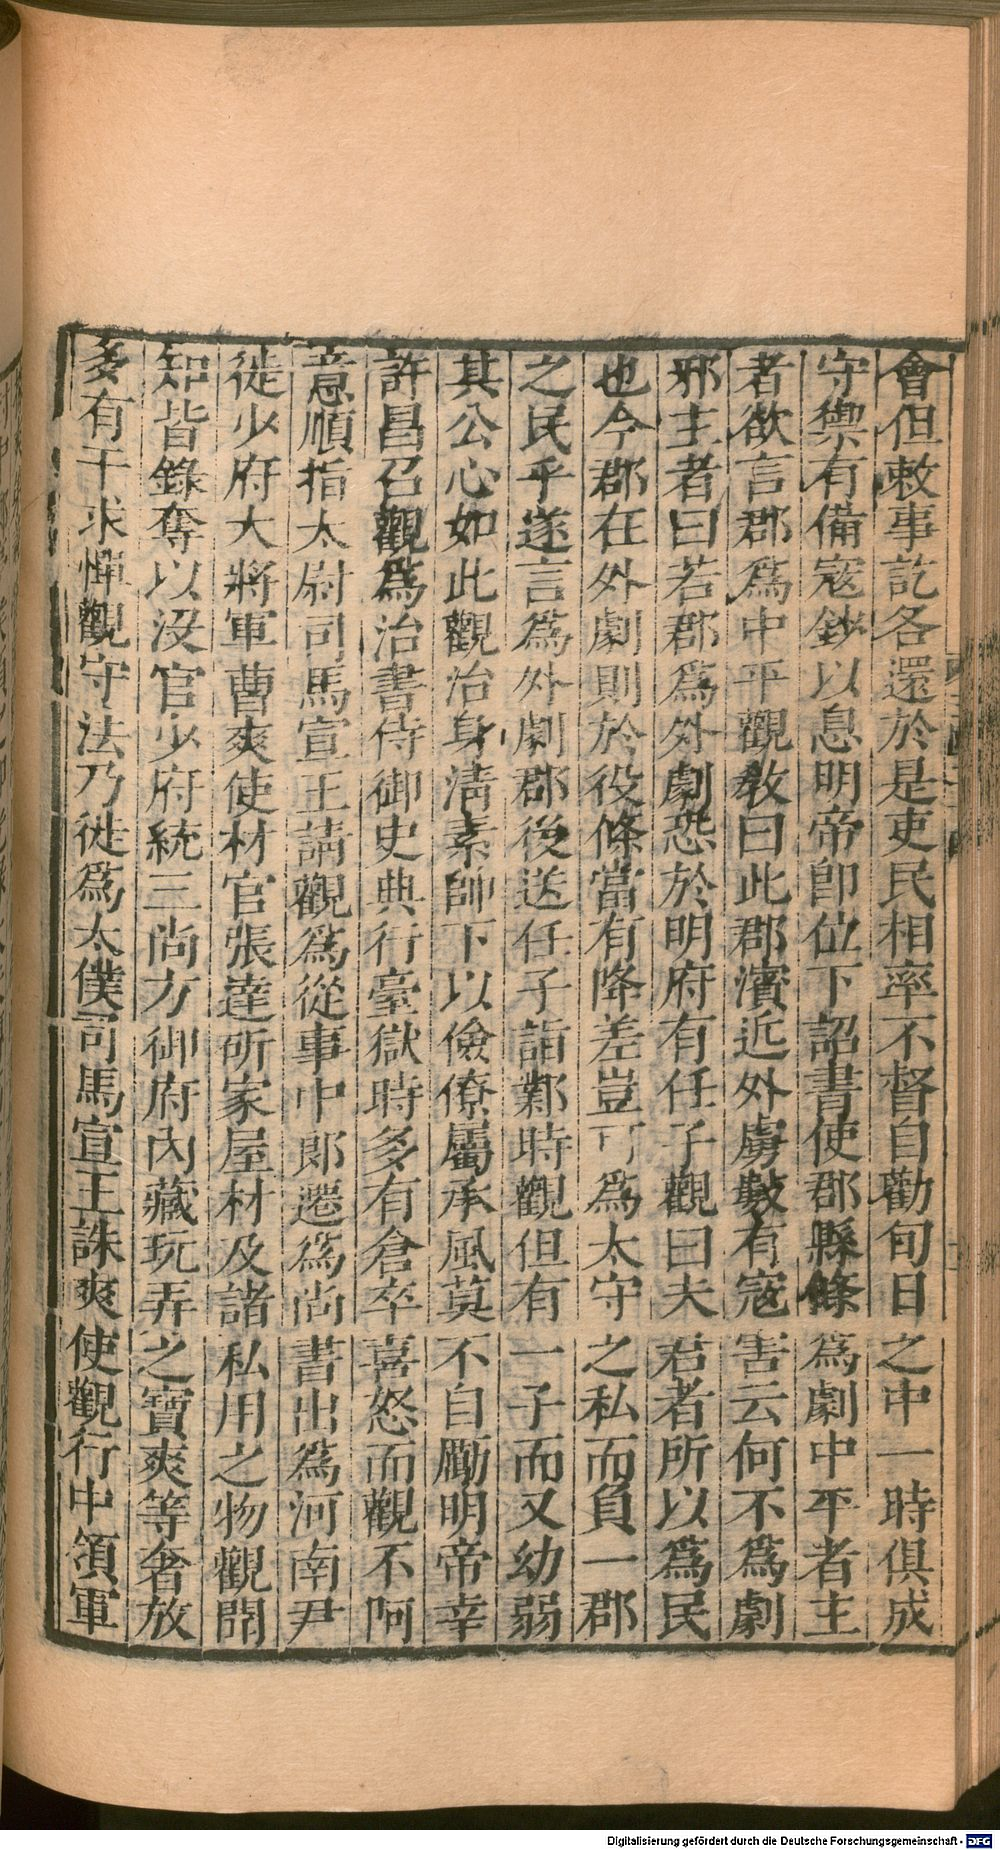 會但敕事訖各還於是吏民相率不督自勸旬日之中一時俱成
守禦有備寇鈔以息明帝卽位下詔書使郡縣條爲劇中平者主
者欲言郡爲中平觀敎曰此郡濱近外虜數有寇害云何不爲劇
邪主者曰若郡爲外劇恐於明府有任子觀曰夫君者所以爲民
也今郡在外劇則於役條當有降差豈可爲太守之私而負一郡
之民乎遂言爲外劇郡後送任子詣鄴時觀但有一子而又幼弱
其公心如此觀治身淸素帥下以儉僚屬承風莫不自勵明帝幸
許昌召觀爲治書侍御史典行臺獄時多有倉卒喜怒而觀不阿
意順指太尉司馬宣王請觀爲從事中郎遷爲尚書出爲河南尹
徙少府大將軍曹爽使材官張達斫家屋材及諸私用之物觀聞
知皆錄奪以沒官少府統三尚方御府內藏玩弄之寶爽等奢放
多有干求憚觀守法乃徙爲太僕司馬宣王誅爽使觀行中領軍
Digitalisierung gefördert durch die Deutsche Forschungsgemeinschaft - DFG